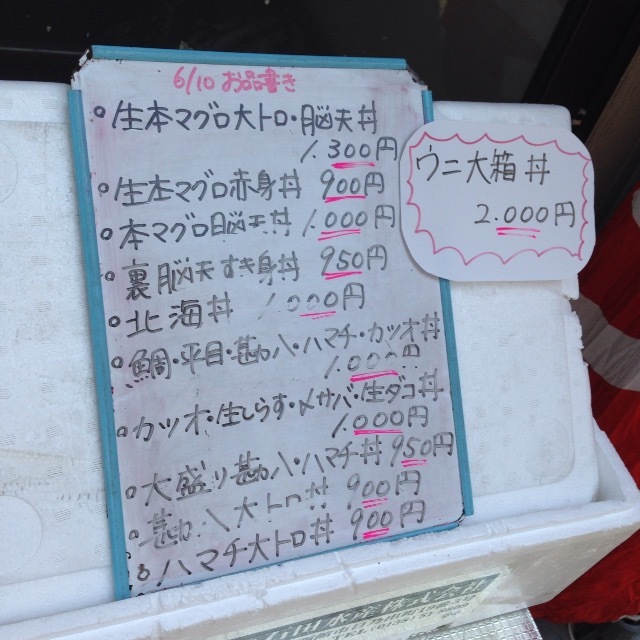 6/10 お品書き
○生本マグロ大トロ・脳天丼
1.300円
○生本マグロ赤身丼 900円
○本マグロ脳天丼 1.000円
○裏脳天すき身丼 950円
○北海丼 1.000円
○鯛・平目・勘八・ハマチ・カツオ丼
1.000円
○カツオ・生しらす・〆サバ・生ダコ丼
1.000円
○大盛り勘八・ハマチ丼 950円
○勘八大トロ丼 900円
○ハマチ大トロ丼 900円
ウニ大箱丼
2.000円